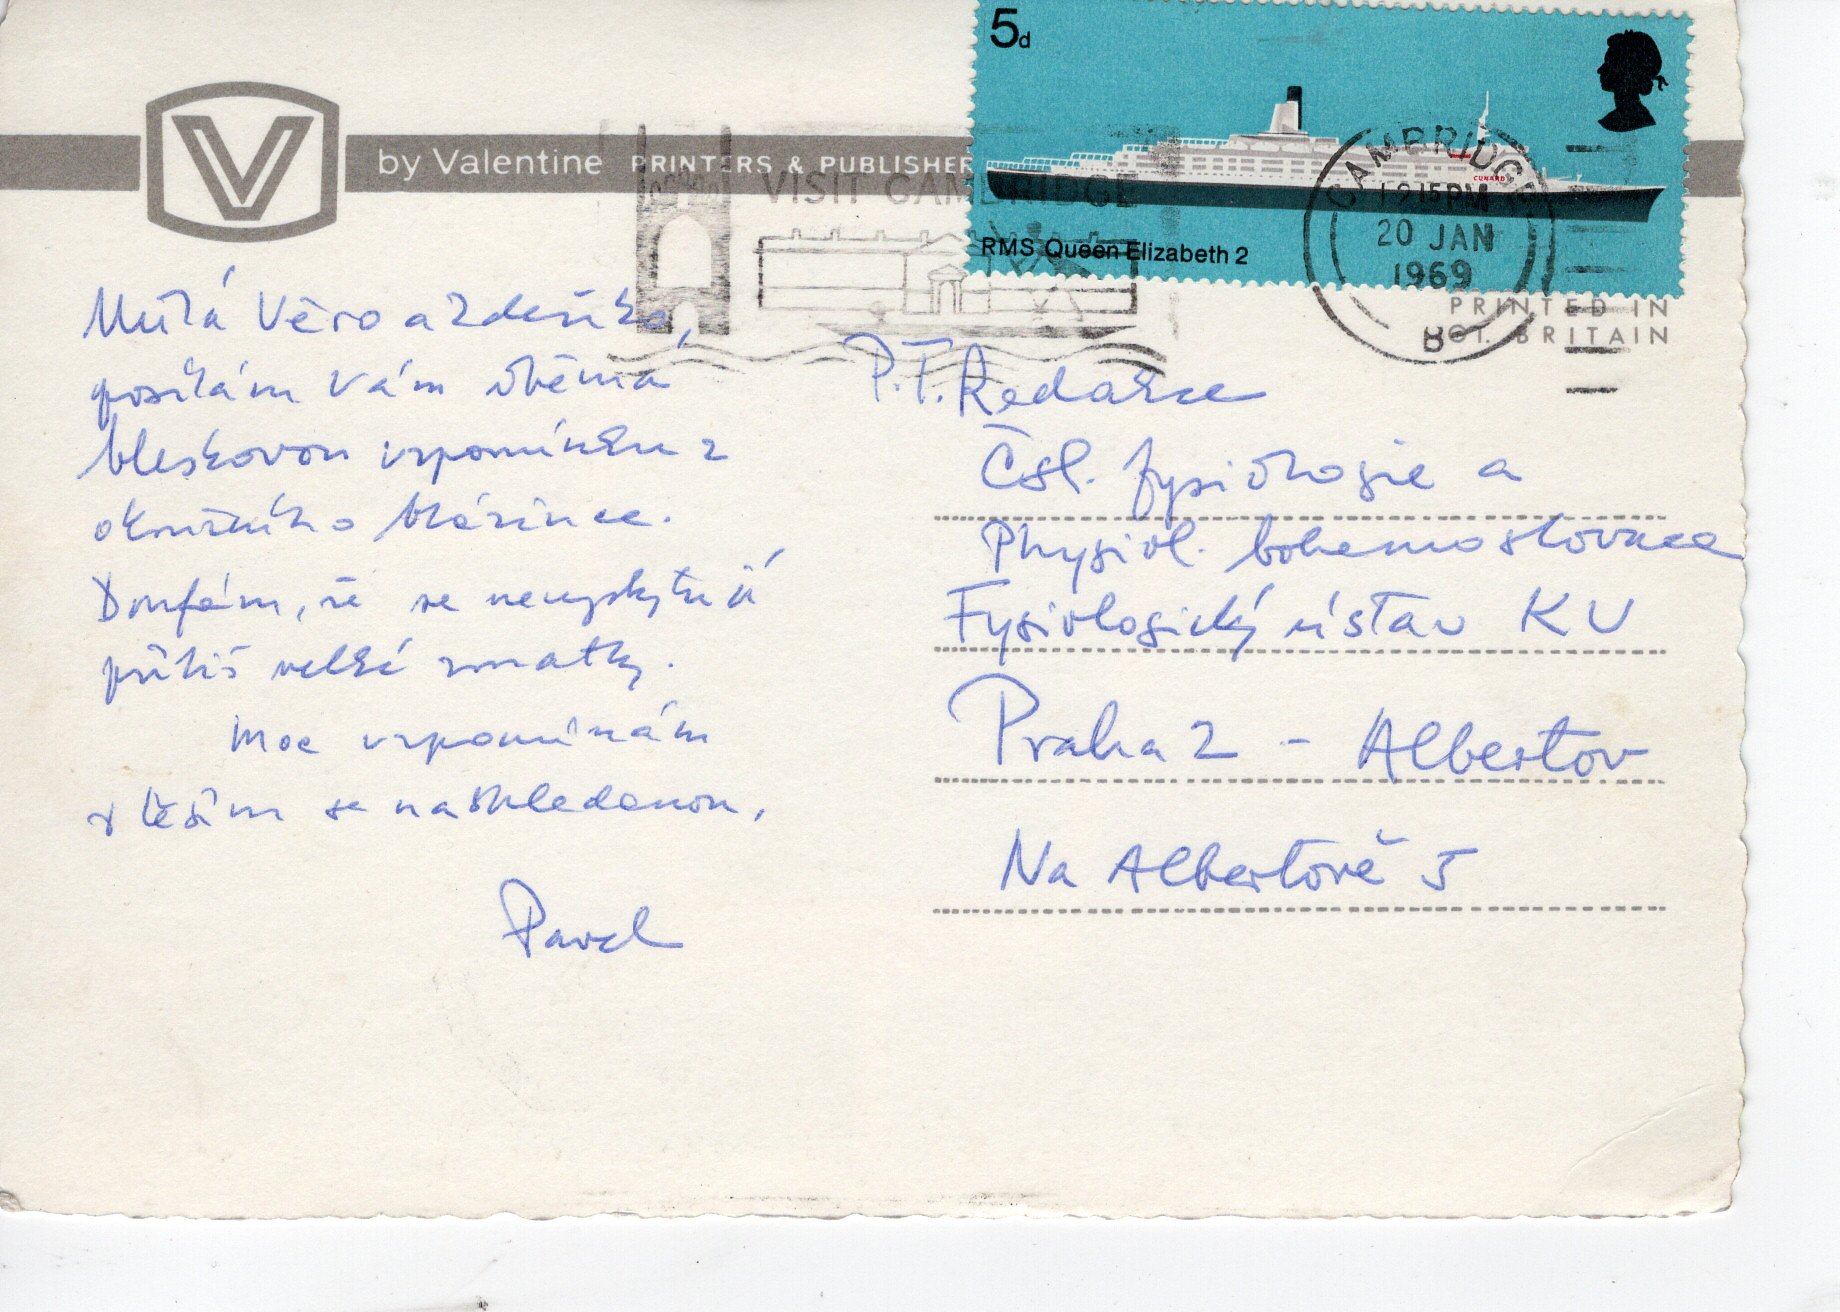 5d
V by Valentine PRINTERS & PUBLISHER
VISIT CAMBRIDGE
CUNARD
RMS Queen Elizabeth 2
CAMBRIDGE
19 15 PM
20 JAN
1969
B
PRINTED IN
GT. BRITAIN
Milá Věro a Zdeňko,
posílám Vám oběma
bleskovou vzpomínku z
okružního blázince.
Doufám, že se nevyskytují
příliš velké zmatky.
Moc vzpomínám
a těším se na shledanou,
Pavel
P.T. Redakce
Čsl. fysiologie a
Physiol. bohemoslovaca
Fysiologický ústav KU
Praha 2 - Albertov
Na Albertově 5